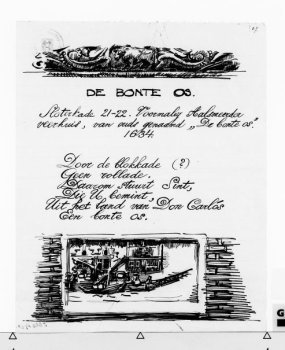 DE BONTE OS.
Sloterkade 21-22. Voormalig Aalsmeerder
veerhuis, van ouds genaamd „De bonte os."
1634.
Door de blokkade (?)
Geen rollade.
Daarom stuurt Sint,
Die U bemint,
Uit het land van Don Carlos
Een bonte os.